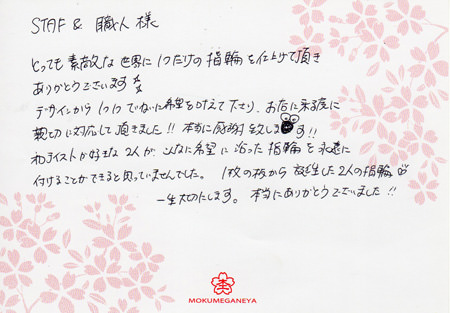 STAFF & 職人 様
とっても素敵な世界に1つだけの指輪を仕上げて頂き
ありがとうございます
デザインから1つ1つていねいに希望を叶えて下さり、お店に来る度に
親切に対応して頂きました!! 本当に感謝致します!!
和テイストが好きな2人が、こんなに希望に沿った指輪を永遠に
付けることができると思っていませんでした。 1枚の板から誕生した2人の指輪
一生大切にします。 本当にありがとうございました!!
MOKUMEGANEYA